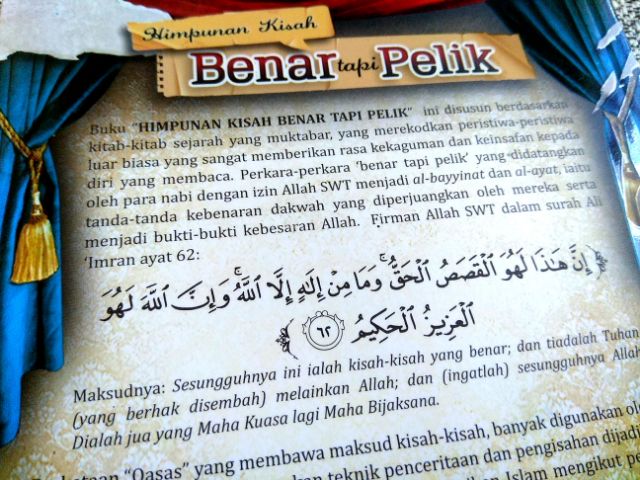 Himpunan Kisah
Benar tapi Pelik
Buku "HIMPUNAN KISAH BENAR TAPI PELIK" ini disusun berdasarkan
kitab-kitab sejarah yang muktabar, yang merekodkan peristiwa-peristiwa
luar biasa yang sangat memberikan rasa kekaguman dan keinsafan kepada
diri yang membaca. Perkara-perkara 'benar tapi pelik' yang didatangkan
oleh para nabi dengan izin Allah SWT menjadi al-bayyinat dan al-ayat, iaitu
tanda-tanda kebenaran dakwah yang diperjuangkan oleh mereka serta
menjadi bukti-bukti kebesaran Allah. Firman Allah SWT dalam surah Ali
'Imran ayat 62:
إِنَّ هَٰذَا لَهُوَ الْقَصَصُ الْحَقُّ ۚ وَمَا مِنْ إِلَٰهٍ إِلَّا اللَّهُ ۚ وَإِنَّ اللَّهَ لَهُوَ
الْعَزِيزُ الْحَكِيمُ ٦٢
Maksudnya: Sesungguhnya ini ialah kisah-kisah yang benar; dan tiadalah Tuhan
(yang berhak disembah) melainkan Allah; dan (ingatlah) sesungguhnya Allah
Dialah jua yang Maha Kuasa lagi Maha Bijaksana.
"Qasas" yang membawa maksud kisah-kisah, banyak digunakan
teknik penceritaan dan pengisahan
Islam mengikut